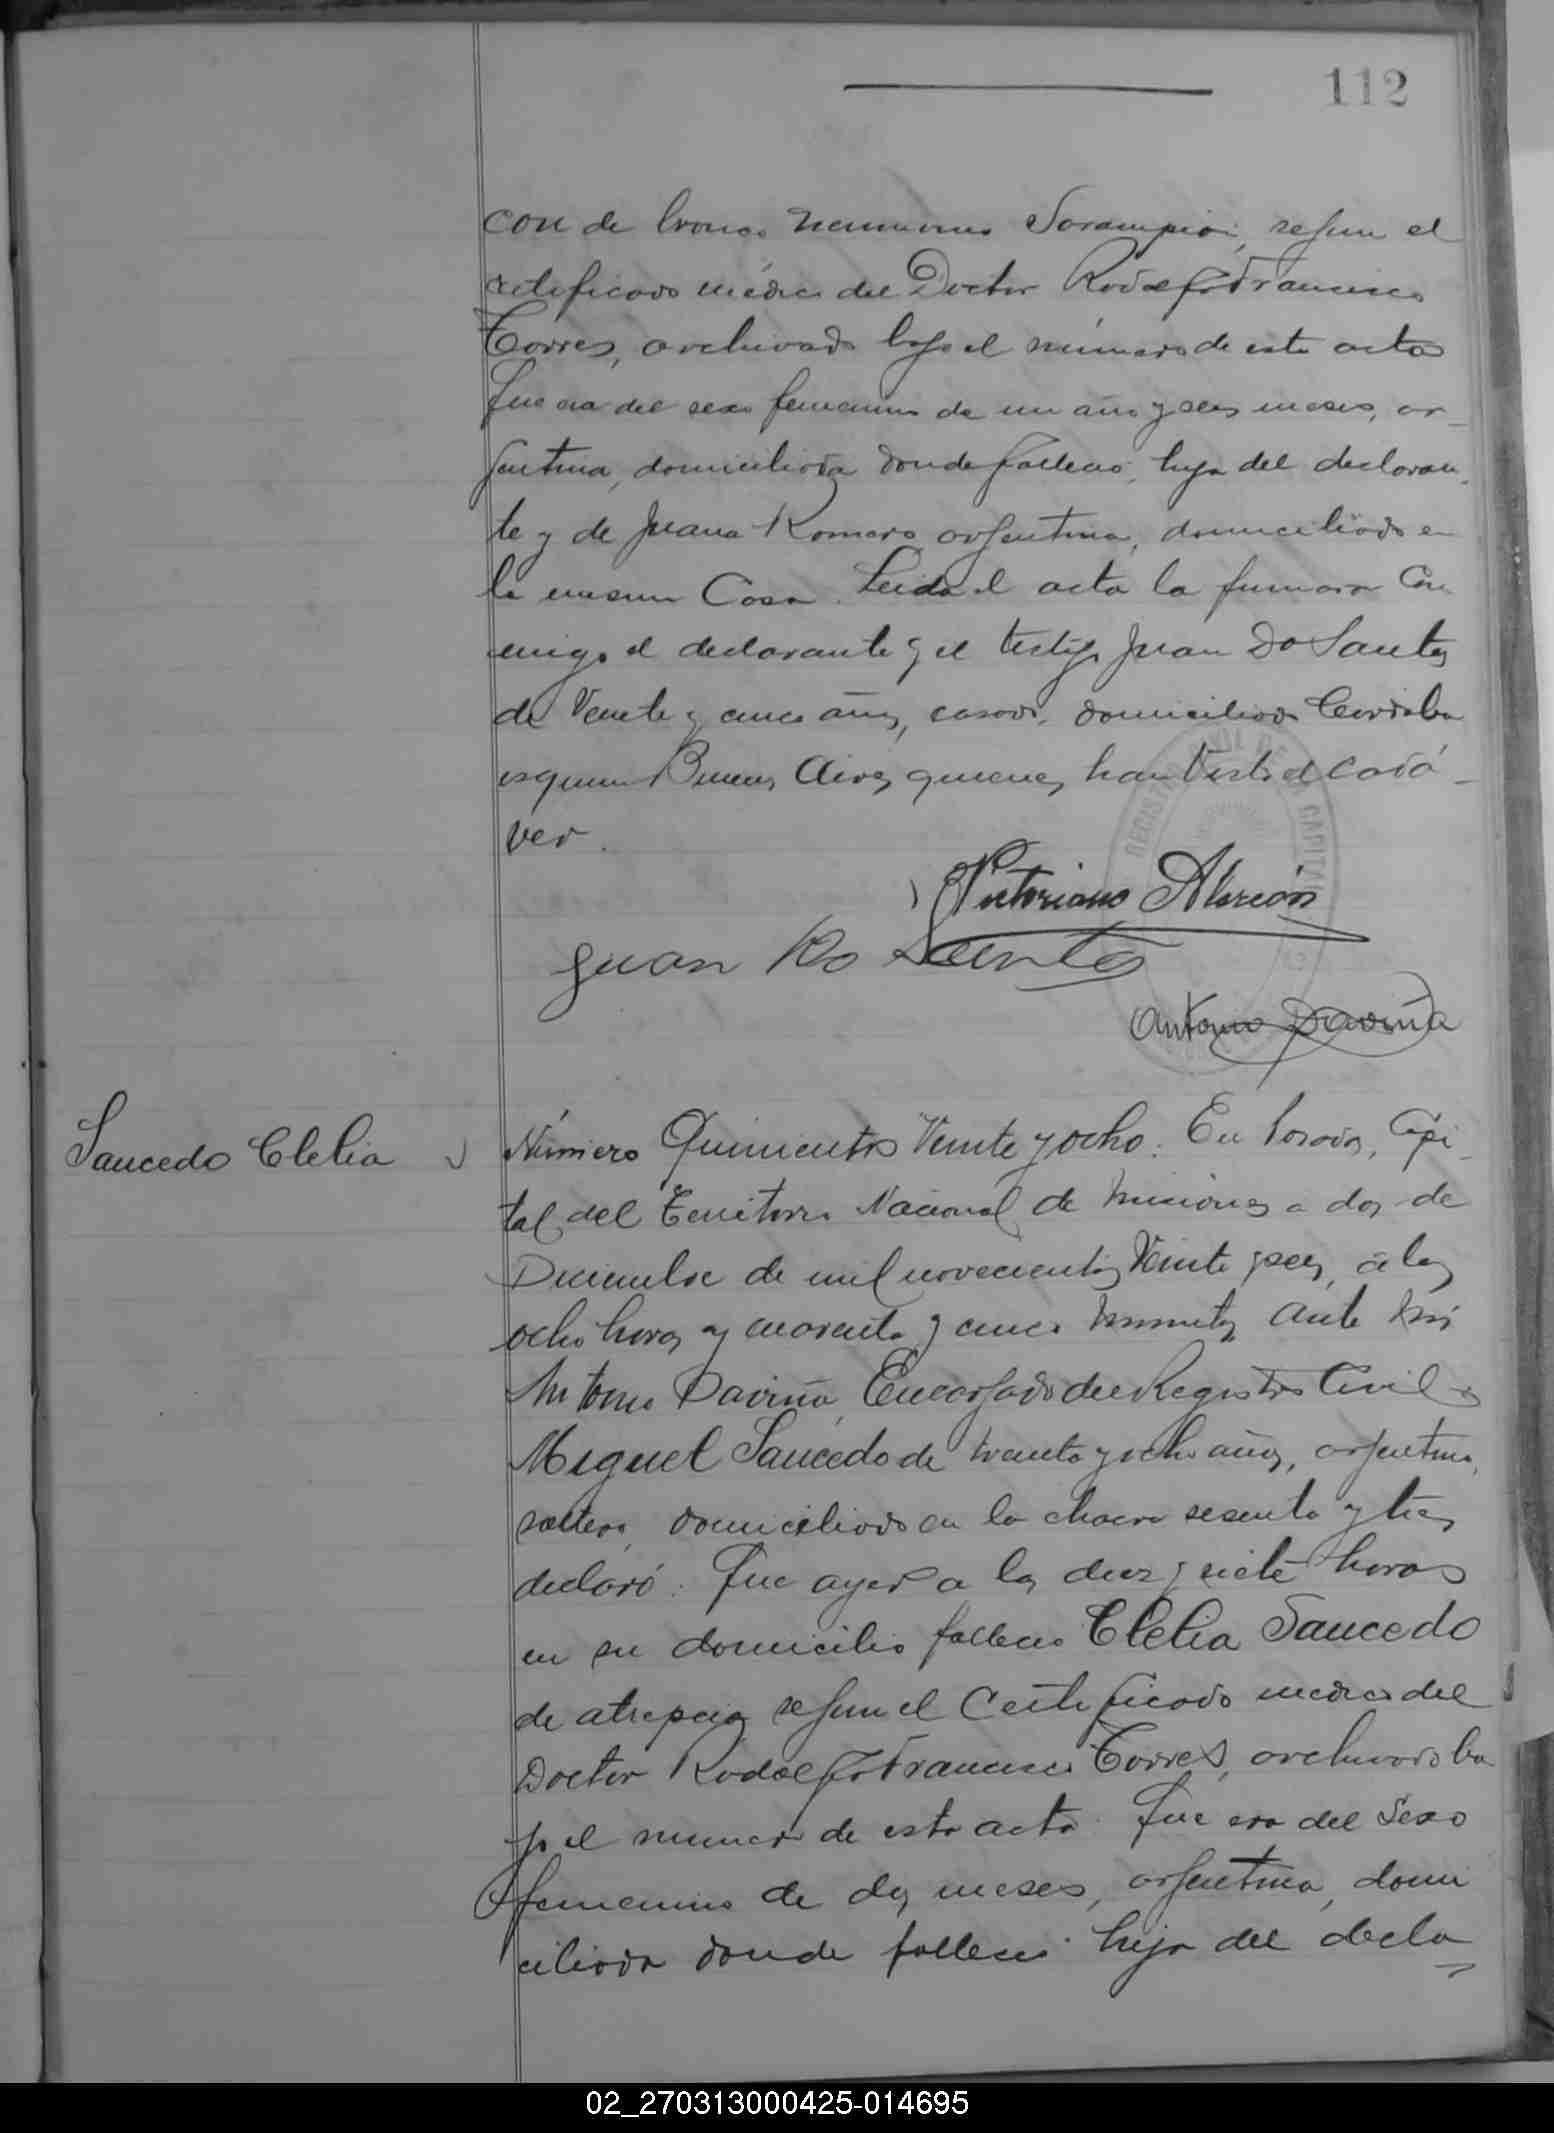 112
con de bronco neumonia Sarampion, segun el
certificado médico del Doctor Rodolfo Francisco
Torres, archivado bajo el número de esta acta
Que era del sexo femenino de un año y seis meses, ar-
gentina, domiciliada donde fallecio, hija del declaran
te y de Juana Romero argentina, domiciliada en
la misma Casa. Leida el acta la firmaron Con
migo el declarante y el testigo Juan Do Santos
de Veinte y cinco años, casado, domiciliado Cordoba
esquina Buenos Aires, quienes han visto el cadá-
ver.
Victoriano Alarcón
Juan Do Santos
Antonio Daviña
REGISTRO CIVIL DE CAPITAL
Saucedo Clelia
Número Quinientos Veinte y ocho. En Posadas, Capi-
tal del Territorio Nacional de Misiones a dos de
Diciembre de mil novecientos Veinte y seis, a las
ocho horas y cuarenta y cinco minutos Ante mi
Antonio Daviña Encargado del Registro Civil
Miguel Saucedo de treinta y ocho años, argentino,
soltero, domiciliado en la chacra sesenta y tres
declaró: Que ayer a las diez y siete horas
en su domicilio fallecio Clelia Saucedo
de atrepcia segun el Certificado medico del
Doctor Rodolfo Francisco Torres, archivado ba
jo el numero de esta acta. Que era del Sexo
femenino de dos meses, argentina, domi
ciliada donde fallecio hija del decla
02_270313000425-014695